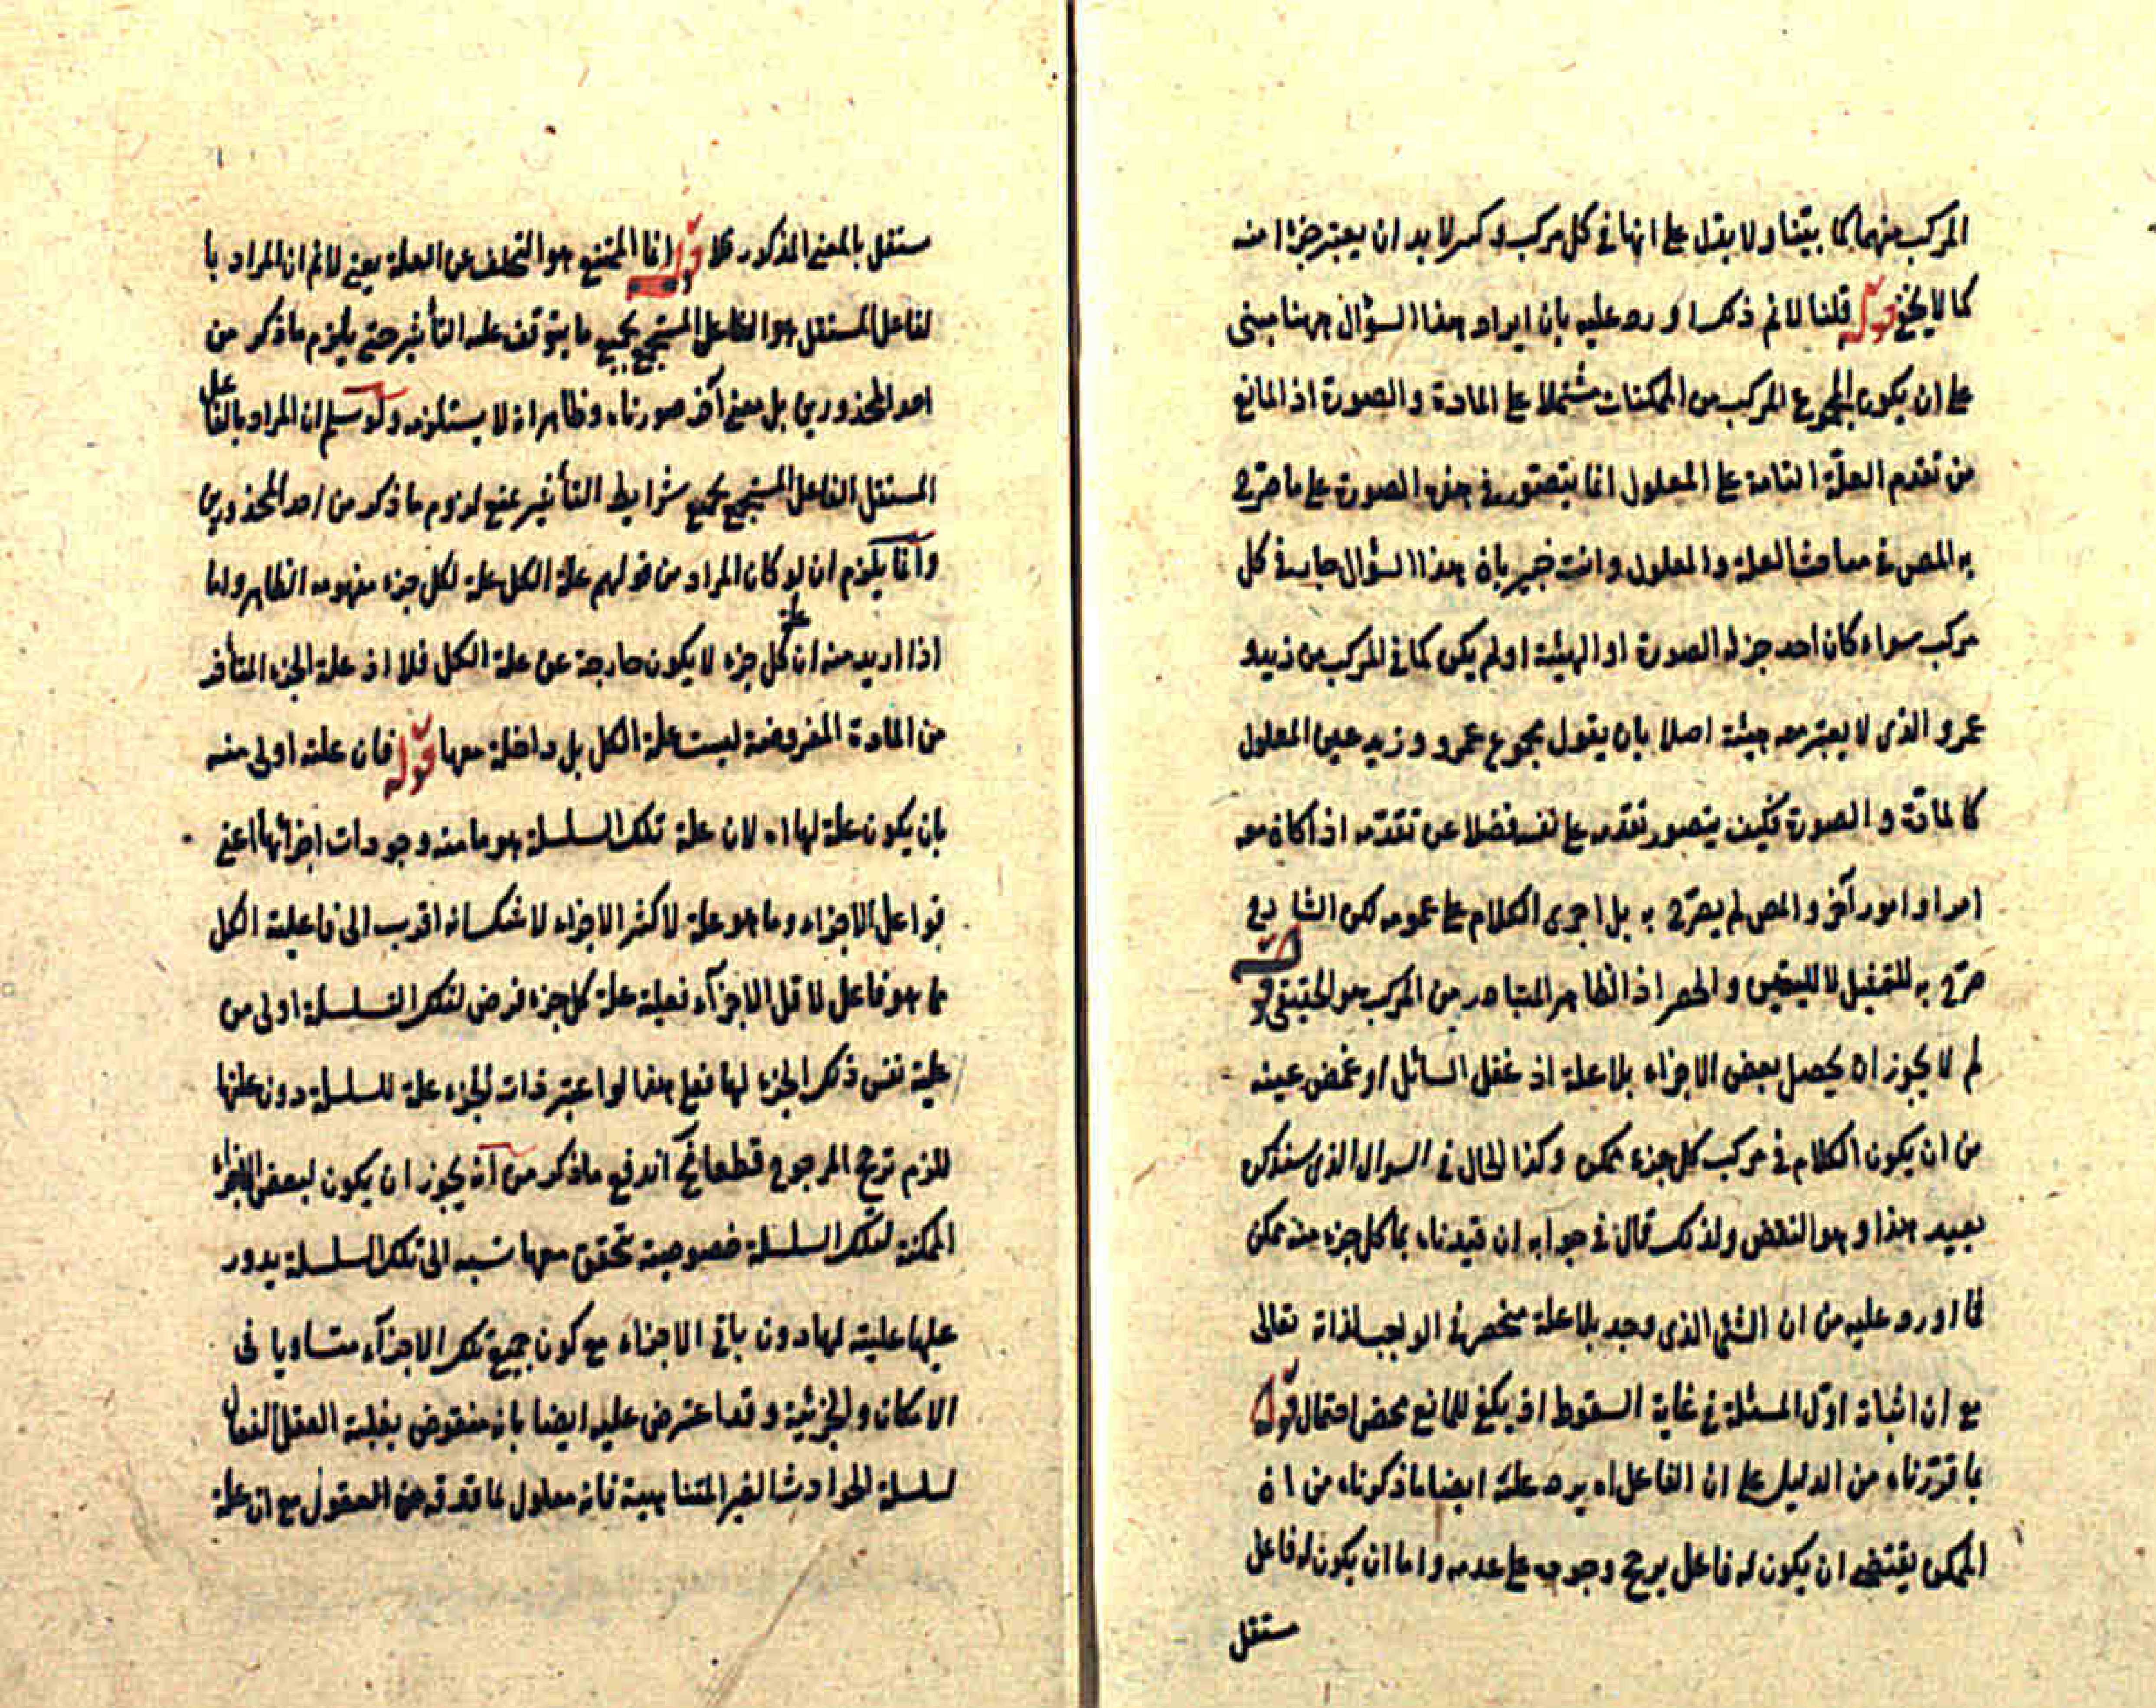 المركب منهما كما بيتنا ولا يقل على انها في كل مركب وكسر لا بد ان يعتبر جزءا منه
كما لا يخفى قوله قلنا لا نم ذلك اورد عليه بان ايراد هذا السؤال ههنا مبنى
على ان يكون المجموع المركب من الممكنات مشتملا على المادة والصورة اذ المانع
من تقدم العلة التامة على المعلول انما يتصور في هذه الصورة على ما صرح
به المص في مباحث العلة والمعلول وانت خبير بان هذا السؤال جار في كل
مركب سواء كان احد جزئه الصورة او الهيئة او لم يكن كما في المركب من زيد و
عمرو الذى لا يعتبر معه هيئة اصلا بان يقول مجموع عمرو وزيد عين المعلول
كالمادة والصورة فكيف يتصور تقدمه على نفسه فضلا عن تقدمه اذا كان معه
امر او امور آخر والمص لم يصرح به بل اجرى الكلام على عمومه لكن الشارح
صرح به للتمثيل لا لليقين والحصر اذ الظاهر المتبادر من المركب هو الحقيقى قوله
لم لا يجوز ان يحصل بعض الاجزاء بلا علة اذ غفل السائل او غمض عينه
من ان يكون الكلام في مركب كل جزء ممكن وكذا الحال في السوال الذى سنذكر
بعيد هذا وهو النقض ولذلك قال في جوابه ان قيدناه بما كل جزء منه ممكن
فما اورد عليه من ان الشئ الذى وجد بلا علة منحصر في الواجب لذاته تعالى
مع ان اثباته اول المسئلة في غاية السقوط اذ يكفى للمانع محض احتمال قوله
بما قررناه من الدليل على ان الفاعل اه يرد عليه ايضا ما ذكرناه من ان
الممكن يقتضى ان يكون له فاعل يرجح وجوده على عدمه واما ان يكون له فاعل
مستقل
مستقل بالمعنى المذكور فلا قوله انما الممتنع هو التخلف عن العلة يعنى لا نم ان المراد با
لفاعل المستقل هو الفاعل المستجمع بجميع ما يتوقف عليه التأثير حتى يلزم ما ذكر من
احد المحذورين بل معنى آخر صورناه وظاهر انه لا يستلزمه ولو سلم ان المراد بالفاعل
المستقل الفاعل المستجمع بجميع شرايط التأثير نمنع لزوم ما ذكر من احد المحذورين
وانما يلزم ان لو كان المراد من قولهم علة الكل علة لكل جزء مفهومه الظاهر واما
اذا اريد منه ان علة كل جزء لا يكون خارجة عن علة الكل فلا اذ علة الجزء المتأخر
من المادة المفروضة ليست علة الكل بل داخلة معها قوله فان علته اولى منه
بان يكون علة لها اه لان علة تلك السلسلة هو ما منه وجودات اجزائها اعنى
فواعل الاجزاء وما هو علة لاكثر الاجزاء لا شك انه اقرب الى فاعلية الكل
مما هو فاعل لاقل الاجزآء فعلية علة كل جزء فرض لتلك السلسلة اولى من
علية نفس ذلك الجزء لها فعلى هذا لو اعتبر ذات الجزء علة للسلسلة دون علتها
للزم ترجح المرجوح قطعا فح اندفع ما ذكر من انه يجوز ان يكون لبعض الاجزاء
الممكنة لتلك السلسلة خصوصية تحقق معها نسبه الى تلك السلسلة يدور
عليها علية لها دون باقى الاجزاء مع كون جميع تلك الاجزآء متساويا فى
الامكان والجزئية وقد اعترض عليه ايضا بانه منقوض بفعلية العقل الفعال
لسلسلة الحوادث الغير المتناهية فانه معلول لما فوقه من العقول مع ان علة